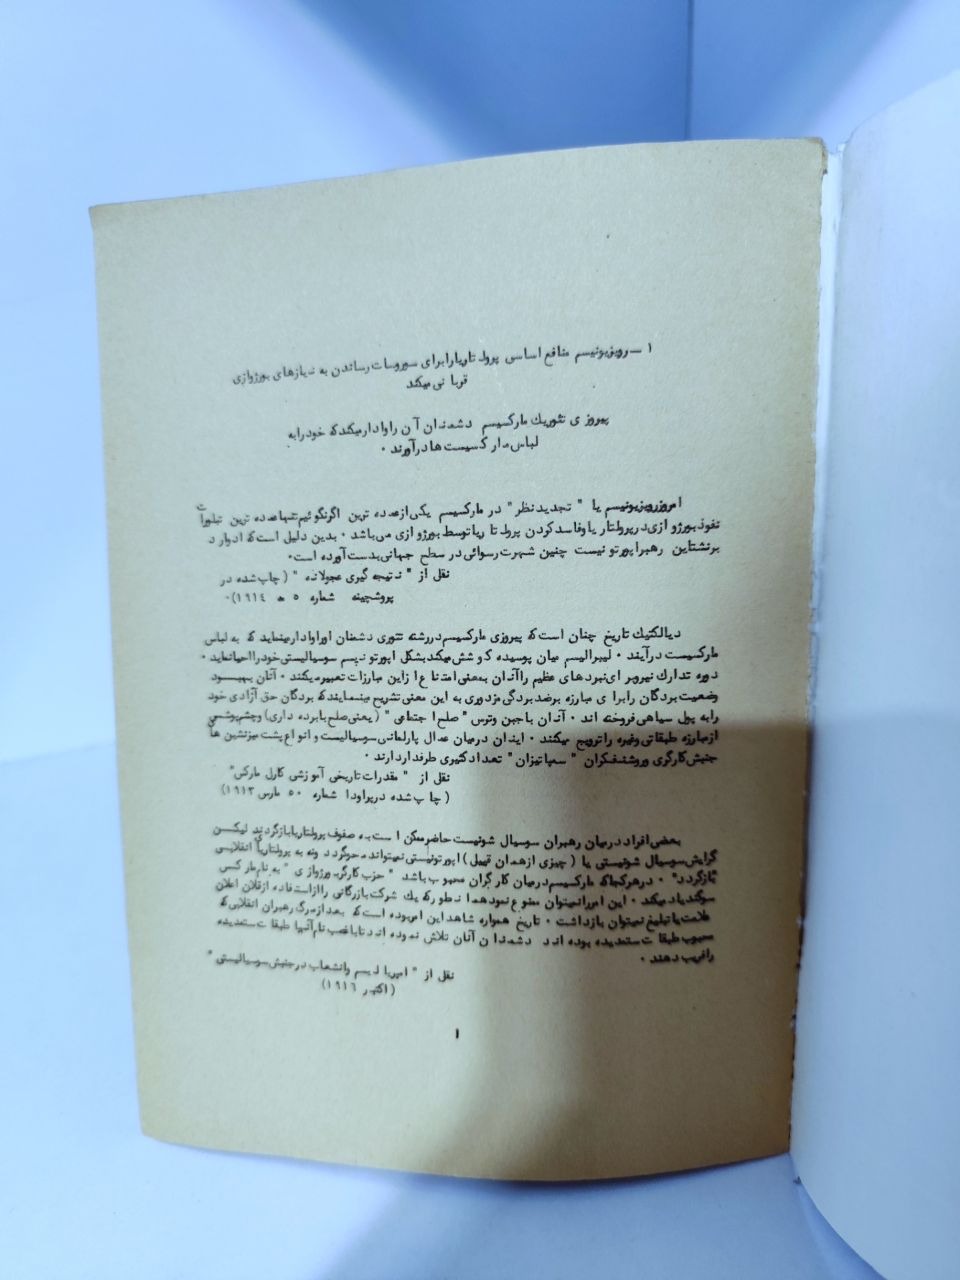 ۱ ــ رویزیونیسم منافع اساسی پرولتاریا را برای سوروسات رساندن به نیازهای بورژوازی
قربانی میکند
پیروزی تئوریك مارکسیسم دشمنان آن را وادار میکند که خود را به
لباس مارکسیست ها در آورند ٠
امروز رویزیونیسم یا " تجدید نظر " در مارکسیسم یکی از عمده ترین اگر نگوئیم تنها عمده ترین تبلورات
نفوذ بورژوازی در پرولتاریا و فاسد کردن پرولتاریا توسط بورژوازی می باشد ٠ بدین دلیل است که ادوارد
برنشتاین رهبر اپورتونیست چنین شهرت رسوائی در سطح جهانی بدست آورده است ٠
نقل از " نتیجه گیری عجولانه " ( چاپ شده در
پروشچینه شماره ٥ مه ١٩١٤) ٠
دیالکتیك تاریخ چنان است که پیروزی مارکسیسم در رشته تئوری دشمنان او را وادار مینماید که به لباس
مارکسیست درآیند ٠ لیبرالیسم میان پوسیده کوشش میکند بشکل اپورتونیسم سوسیالیستی خود را احیا نماید ٠
دوره تدارك نیرو برای نبردهای عظیم را آنان بمعنی امتناع از این مبارزات تعبیر میکنند ٠ آنان بهبود
وضعیت بردگان را برای مبارزه بر ضد بردگی مزدوری به این معنی تشریح مینمایند که بردگان حق آزادی خود
را به پول سیاهی فروخته اند ٠ آنان با جبن و ترس " صلح اجتماعی " ( یعنی صلح با برده داری) و چشم پوشی
از مبارزه طبقاتی و غیره را ترویج میکنند ٠ اینان در میان عمال پارلمانی سوسیالیست و انواع پشت میز نشین های
جنبش کارگری و روشنفکران " سمپاتیزان " تعداد کثیری طرفدار دارند ٠
نقل از " مقدرات تاریخی آموزش کارل مارکس"
( چاپ شده در پراودا شماره ٥٠ مارس ١٩١٣)
بعضی افراد در میان رهبران سوسیال شونیست حاضر ممکن است به صفوف پرولتاریا بازگردند لیکن
گرایش سوسیال شونیستی یا ( چیزی از همان قبیل ) اپورتونیستی نمیتواند محو گردد و نه به پرولتاریا انقلابی
"بازگردد" ٠ در هر کجا که مارکسیسم در میان کارگران محبوب باشد " حزب کارگر بورژوازی " به نام مارکس
سوگند یاد میکند ٠ این امر را نمیتوان ممنوع نمود همانطور که یك شرکت بازرگانی را از استفاده از فلان اعلان
علامت یا تبلیغ نمیتوان باز داشت ٠ تاریخ همواره شاهد این امر بوده است که بعد از مرگ رهبران انقلابی که
محبوب طبقات ستمدیده بوده اند دشمنان آنان تلاش نموده اند تا با غصب نام آنها طبقات ستمدیده
را فریب دهند ٠
نقل از " امپریالیسم و انشعاب در جنبش سوسیالیستی "
( اکتبر ١٩١٦)
۱